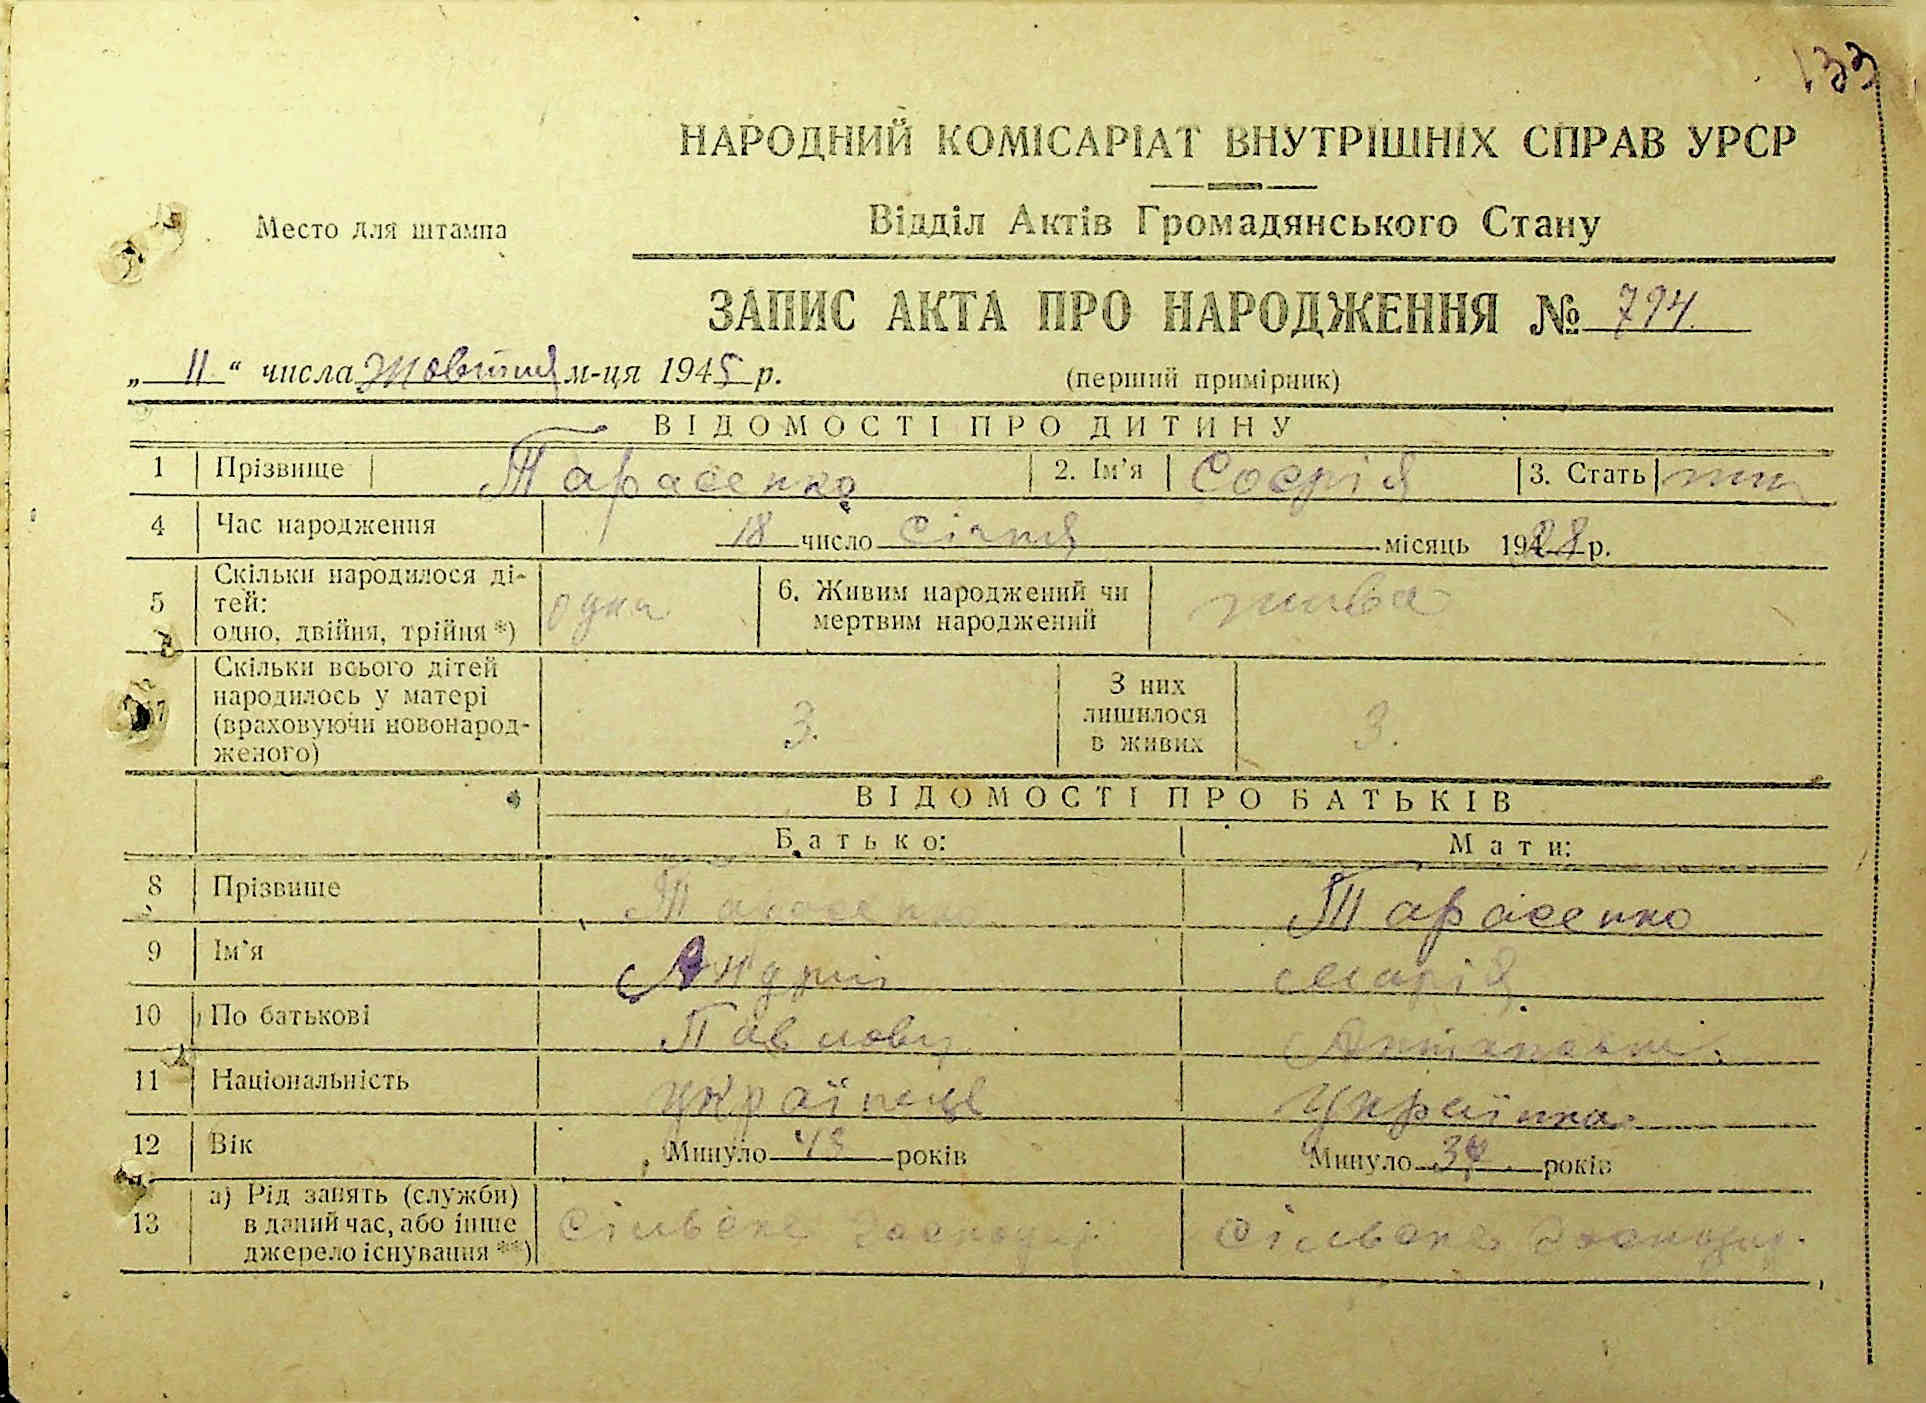 133
НАРОДНИЙ КОМІСАРІАТ ВНУТРІШНІХ СПРАВ УРСР
Место для штампа
Відділ Актів Громадянського Стану
ЗАПИС АКТА ПРО НАРОДЖЕННЯ № 794
„ 11 “ числа Жовтня м-ця 1945 р.
(перший примірник)
ВІДОМОСТІ ПРО ДИТИНУ
1 Прізвище Тарасенко 2. Ім'я Соєрія 3. Стать жін
4 Час народження 18 число Січня місяць 1928 р.
5 Скільки народилося ді-
тей:
одно, двійня, трійня *) одна 6. Живим народжений чи
мертвим народжений жива
Скільки всього дітей
народилось у матері
(враховуючи новонарод-
женого) 3. З них
лишилося
в живих 3.
ВІДОМОСТІ ПРО БАТЬКІВ
Батько: Мати:
8 Прізвище Тарасенко Тарасенко
9 Ім'я Андрій Марія
10 По батькові Павлович
11 Національність українець Українка.
12 Вік Минуло 43 років Минуло 37 років
13 а) Рід занять (служби)
в даний час, або інше
джерело існування **) Сільське господар. Сільське господар.